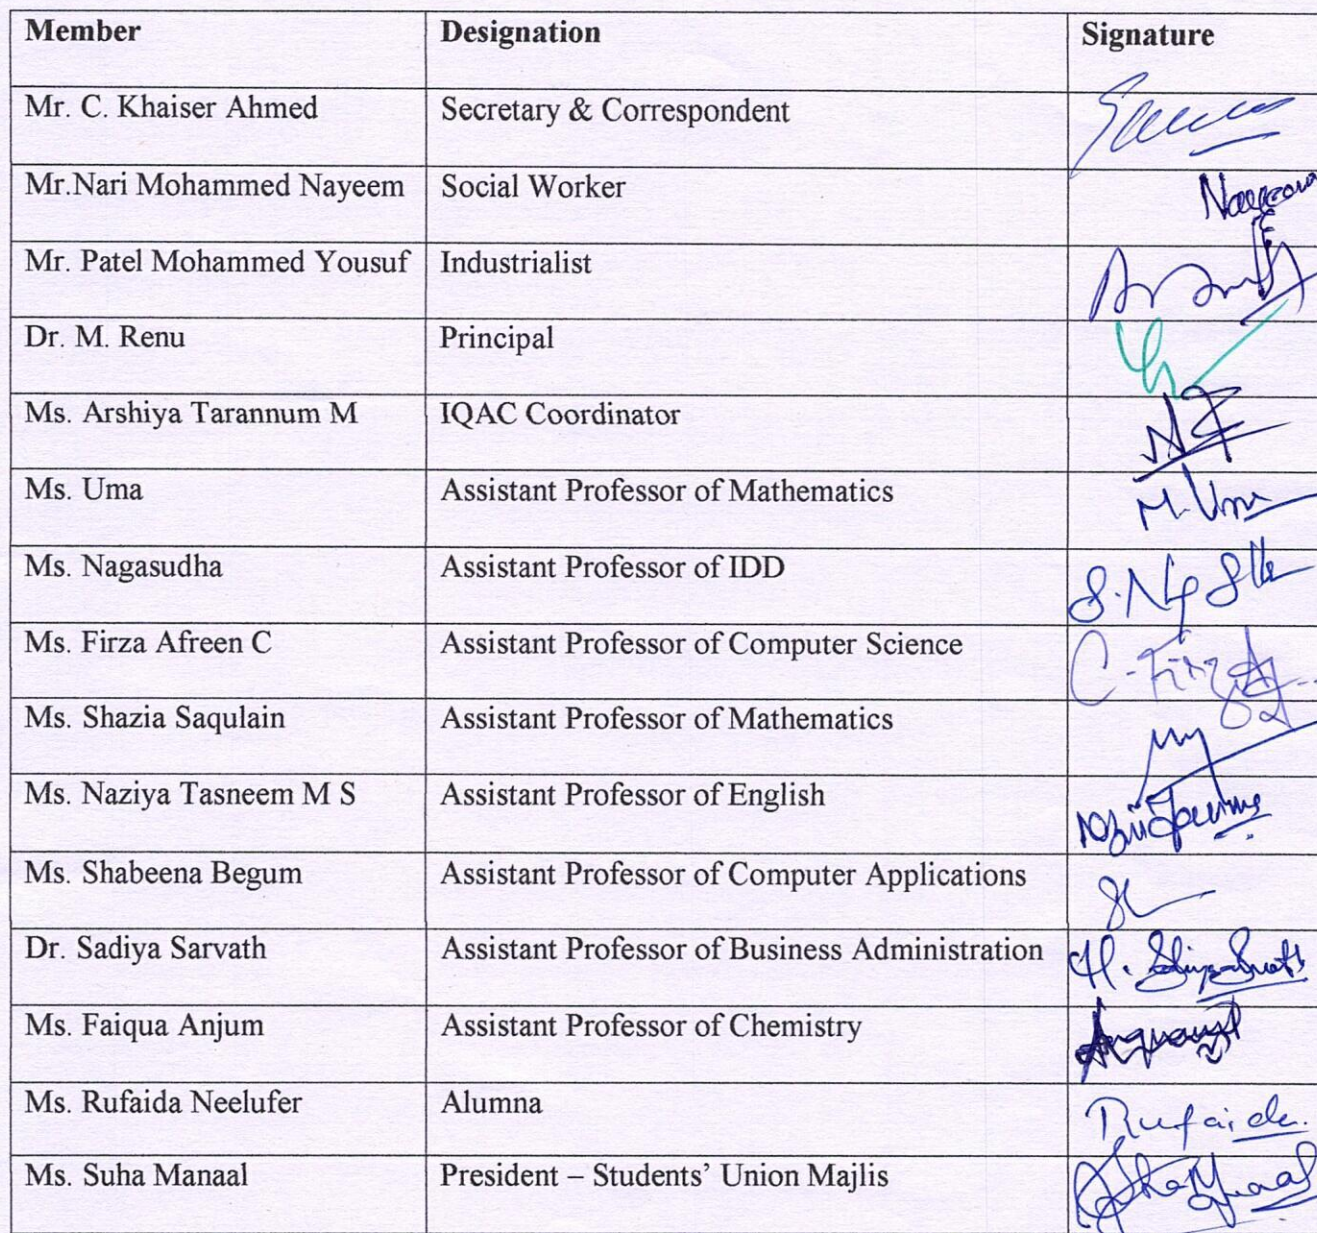 Member Designation Signature
Mr. C. Khaiser Ahmed Secretary & Correspondent
Mr.Nari Mohammed Nayeem Social Worker Nayeem
Mr. Patel Mohammed Yousuf Industrialist
Dr. M. Renu Principal
Ms. Arshiya Tarannum M IQAC Coordinator
Ms. Uma Assistant Professor of Mathematics M. Uma
Ms. Nagasudha Assistant Professor of IDD
Ms. Firza Afreen C Assistant Professor of Computer Science
Ms. Shazia Saqulain Assistant Professor of Mathematics
Ms. Naziya Tasneem M S Assistant Professor of English
Ms. Shabeena Begum Assistant Professor of Computer Applications
Dr. Sadiya Sarvath Assistant Professor of Business Administration
Ms. Faiqua Anjum Assistant Professor of Chemistry
Ms. Rufaida Neelufer Alumna Rufaida
Ms. Suha Manaal President – Students’ Union Majlis